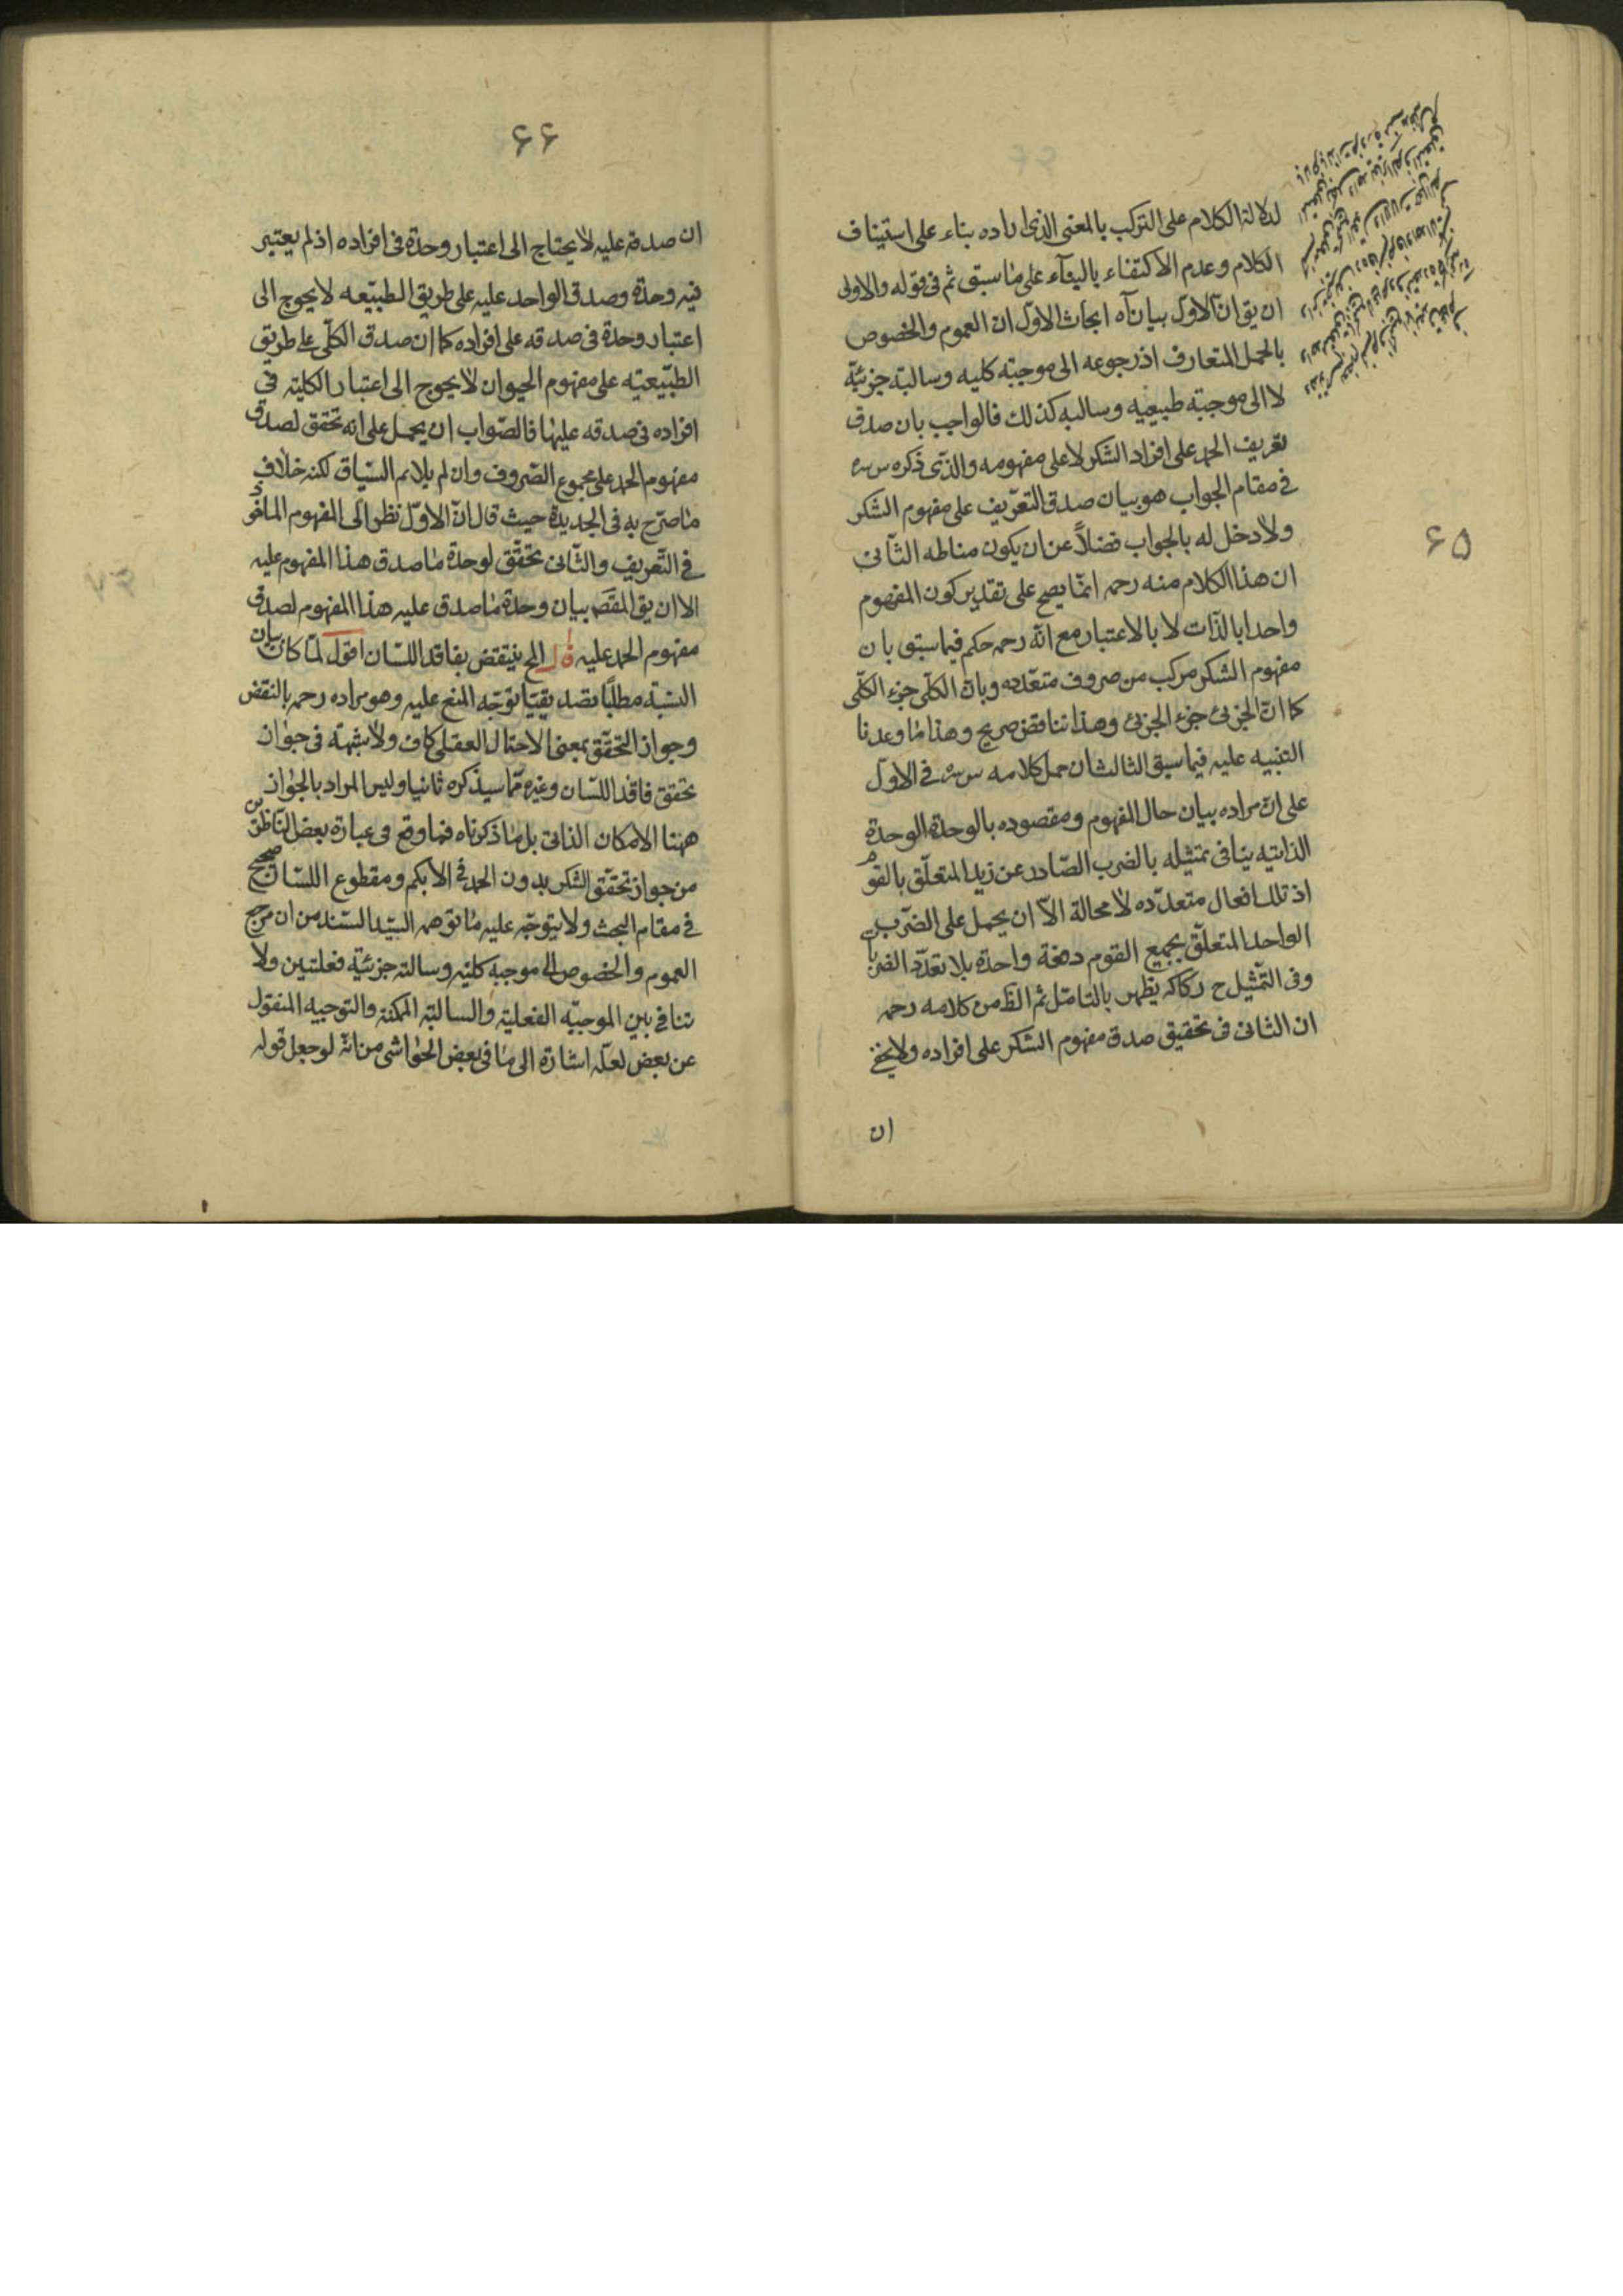 ۶۵
لدلالة الكلام على التركب بالمعنى الذى اراده بناء على استيناف
الكلام وعدم الاكتفاء بالبنآء على ما سبق ثم فى قوله والاولى
ان يق ان الاول بيان آه ابحاث الاول ان العموم والخصوص
بالحمل المتعارف اذ رجوعه الى موجبة كليه وسالبة جزئية
لا الى موجبة طبيعيه وسالبه كذلك فالواجب بان صدق
تعريف الحمد على افراد الشكر لا على مفهومه والذى ذكره س سره
فى مقام الجواب هو بيان صدق التعريف على مفهوم الشكر
ولا دخل له بالجواب فضلاً عن ان يكون مناطه الثانى
ان هذا الكلام منه رحمه انما يصح على تقدير كون المفهوم
واحدا بالذات لا بالاعتبار مع انه رحمه حكم فيما سبق بان
مفهوم الشكر مركب من صروف متعدده وبان الكلّى جزء الكلّى
كما انّ الجزئى جزء الجزئى وهذا تناقض صريح وهذا ما وعدنا
التنبيه عليه فيما سبق الثالث ان حمل كلامه س سره فى الاول
على ان مراده بيان حال المفهوم ومقصوده بالوحدة الوحدة
الذاتيه ينافى تمثيله بالضرب الصّادر عن زيد المتعلّق بالقوم
اذ تلك افعال متعدّده لا محالة الاّ ان يحمل على الضرب
الواحد المتعلّق بجميع القوم دفعة واحدة بلا تعدّد الضربات
وفى التمثيل ح ركاكه يظهر بالتامّل ثم الظ من كلامه رحمه
ان الثانى فى تحقيق صدق مفهوم الشكر على افراده ولا يخفى
ان
۶۶
ان صدقه عليه لا يحتاج الى اعتبار وحدة فى افراده اذ لم يعتبر
فيه وحدة وصدق الواحد عليه على طريق الطبيعه لا يحوج الى
اعتبار وحدة فى صدقه على افراده كما ان صدق الكلّى على طريق
الطبيعيّه على مفهوم الحيوان لا يحوج الى اعتبار الكليّه فى
افراده فى صدقه عليها فالصّواب ان يحمل على انه تحقق لصدق
مفهوم الحمد على مجموع الصّروف وان لم يلائم السّياق لكنه خلاف
ما صرّح به فى الجديدة حيث قال انّ الاوّل نظر الى المفهوم المأخوذ
فى التّعريف والثّانى تحقّق لوحدة ما صدق هذا المفهوم عليه
الا ان يق المقصَ بيان وحدة ما صدق عليه هذا المفهوم لصدق
مفهوم الحمد عليه قال المح ينتقض بفاقد اللسّان اقول لمّا كان بيان
النسّبة مطلبًا تصديقيّا توجّه المنع عليه وهو مراده رحمه بالنقض
وجواز التحقّق بمعنى الاحتمال العقلى كاف ولا شبهة فى جواز
تحقق فاقد اللسّان وغيره ممّا سيذكره ثانيا وليس المراد بالجواز
ههنا الامكان الذاتى بل ما ذكرناه فما وقع فى عبارة بعض النّاظرين
من جواز تحقّق الشكر بدون الحمد فى الابكم ومقطوع اللسّان صحيح
فى مقام البحث ولا يتوجّه عليه ما توهمه السيّد السّند من ان مرجع
العموم والخصوص الى موجبة كليّه وسالبة جزئيّة فعليتين ولا
تنافى بين الموجبّه الفعليّه والسالبة الممكنة والتوجيه المنقول
عن بعض لعلّه اشارة الى ما فى بعض الحواشى من انّه لو جعل قوله